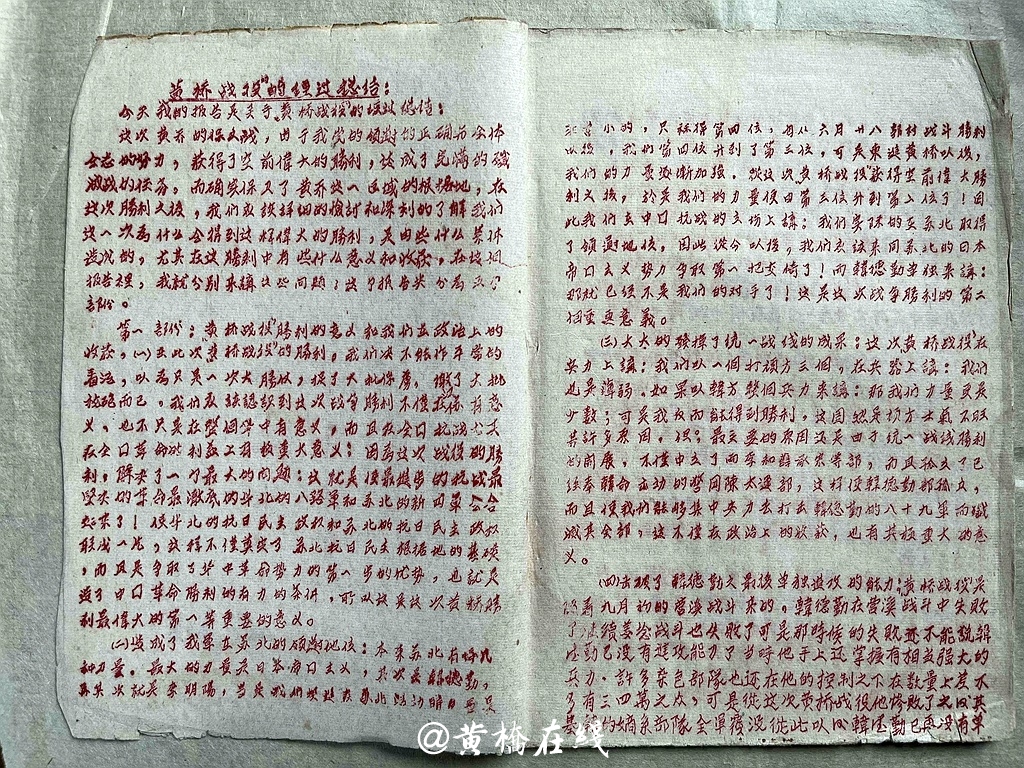 黄桥战役"的经过总结:
今天我的报告是关于"黄桥战役"的经过总结:
这次黄桥的保卫战,由于我党的领导的正确与全体
全志的努力,获得了空前偉大的勝利,达成了完满的殲
滅战的任务。而确实保卫了黄桥这一区域的根据地,在
这次勝利之後,我们应该详细的檢討和深刻的了解我们
这一次為什么会得到这样偉大的勝利,是由些什么条件
造成的,尤其在这勝利中有些什么意义和收获,在这個
报告裡,我就分别来講这些问題;这个报告共分為
部份。
第一部份:"黄桥战役"勝利的意义和我们在政治上的
收获。(一)在此次"黄桥战役"的勝利,我们决不能作平常的
看法,以為只是一次大勝仗,捉了大批俘虏,缴了大批
枪砲而已。我们应该認識到这次战争勝利不僅有意
义,也不只是在整個华中有意义,而且在全囗抗战尤其
在全囗革命的利益上有极重大意义;因為这次战役的勝
利,解决了一个最大的问題;这就是使最進步的抗战最
坚决的革命最澈底的华北的八路軍和苏北的新四軍会合
起来了!使华北的抗日民主政权和苏北的抗日民主政权
联成一片,这样不僅奠定了苏北抗日民主根据地的基礎
,而且是争取了华中革命势力的第一步的优势,也就是
造了中囗革命勝利的有力的条件,所以这是这次黄桥勝
利最偉大的第一等重要的意义。
(二)造成了我軍在苏北的領導地位:本来苏北有好几
种力量。最大的力量是日本帝囗主义,其次是韓德勤,
再其次就是李明陽,当是我们
和弱小的,只祘得第四位,自从六月廿八郭村战斗勝利
以後,我们第四位升到了第三位,可是東進黄桥以後,
我们的力量逐渐加强。然这次黄桥战役获得空前偉大勝
利之後,於是我们的力量便由第三位升到第二位了!因
此我们在中囗抗战的立场上講:我们实际的在苏北取得
了領導地位。因此從今以後,我们应该来同苏北的日本
帝囗主义势力争取第一把交椅了!而韓德勤单独来講:
那就已经不是我们的对手了!这是这次战争勝利的第二
個重要意義。
(三)大大的發揮了统一战线的成果:这次"黄桥战役"在
兵力上講:我们以一個打頑方三個,在兵器上講:我们
也是薄弱。如果以韓方整個兵力来講:那我们力量更是
少数;可是我反而能得到勝利,这固然是頑方士氣不旺
等許多原因,但;最主要的原因还是由于统一战线勝利
的開展,不僅中立了两李和等部,而且孤立了已
经奉韓命出动的警囗陳太運部,这样使韓德勤部孤立,
而且使我们能够集中兵力去打击韓德勤的八十九軍而殲
滅其全部,这不僅在政治上的收获,也有其极重大的意
义。
(四)击破了韓德勤之最後单独進攻的能力:"黄桥战役"是
接着九月初的营溪战斗来的。韓德勤在营溪战斗中失敗
了继续姜堰战斗也失敗了可是那時候的失敗还不能說韓
德勤已没有進攻能力了当時他手上还掌握有相当强大的
兵力。許多杂色部隊也还在他的控制之下在数量上差不
多有三四萬之众,可是從这次黄桥战役他慘敗了之以其
基幹的嫡系部隊全軍覆没從此以以韓德勤已再没有单
@黄橋在线